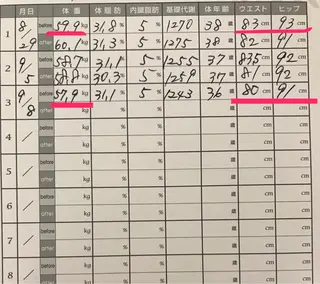 月日 体重 体脂肪 内臓脂肪 基礎代謝 体年齢 ウエスト ヒップ
1 8/29 before 59.9kg 31.8% 5% 1270 38歳 83cm 93cm
after 60.1kg 31.3% 5% 1275 38歳 82cm 91cm
2 9/5 before 58.7kg 31.1% 5% 1255 37歳 83.5cm 92cm
after 58.8kg 30.3% 5% 1259 37歳 81cm 92cm
3 9/8 before 57.9kg 31.1% 5% 1243 36歳 80cm 91cm
after kg % % 歳 cm cm
4 / before kg % % 歳 cm cm
after kg % % 歳 cm cm
5 / before kg % % 歳 cm cm
after kg % % 歳 cm cm
6 / before kg % % 歳 cm cm
after kg % % 歳 cm cm
7 / before kg % % 歳 cm cm
after kg % % 歳 cm cm
8 / before kg % % 歳 cm cm